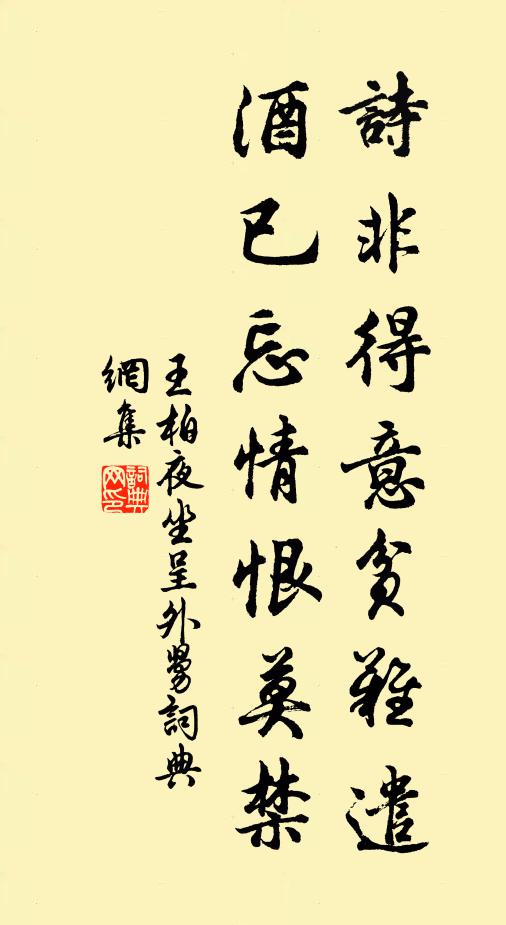 詩非得意貧難遣
酒已忘情恨莫禁
王柏夜坐呈外舅詞典
網集
詞典
网印